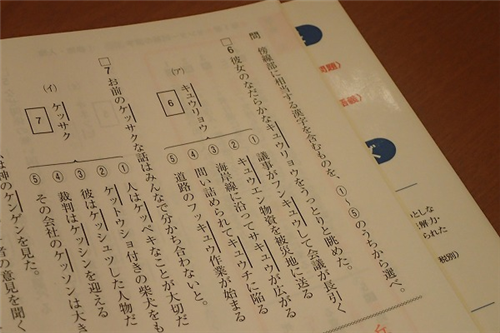 問 傍線部に相当する漢字を含むものを、①〜⑤のうちから選べ。
□6 彼女のなだらかなキュウリョウをうっとりと眺めた。
(ア) キュウリョウ
6
① 議事がフンキュウして会議が長引く
② キュウエン物資を被災地に送る
③ 海岸線に沿ってサキュウが広がる
④ 問い詰められてキュウチに陥る
⑤ 道路のフッキュウ作業が始まる
□7 お前のケッサクな話はみんなで分かち合わないと。
(イ) ケッサク
7
① 人はケッペキなことが大切だ
② ケットウショ付きの柴犬をも
③ 彼はケッシュツした人物だ
④ 裁判はケッシンを迎える
⑤ その会社のケッソンは大き
は神のケンゲンを見た。
者の意見を聞く